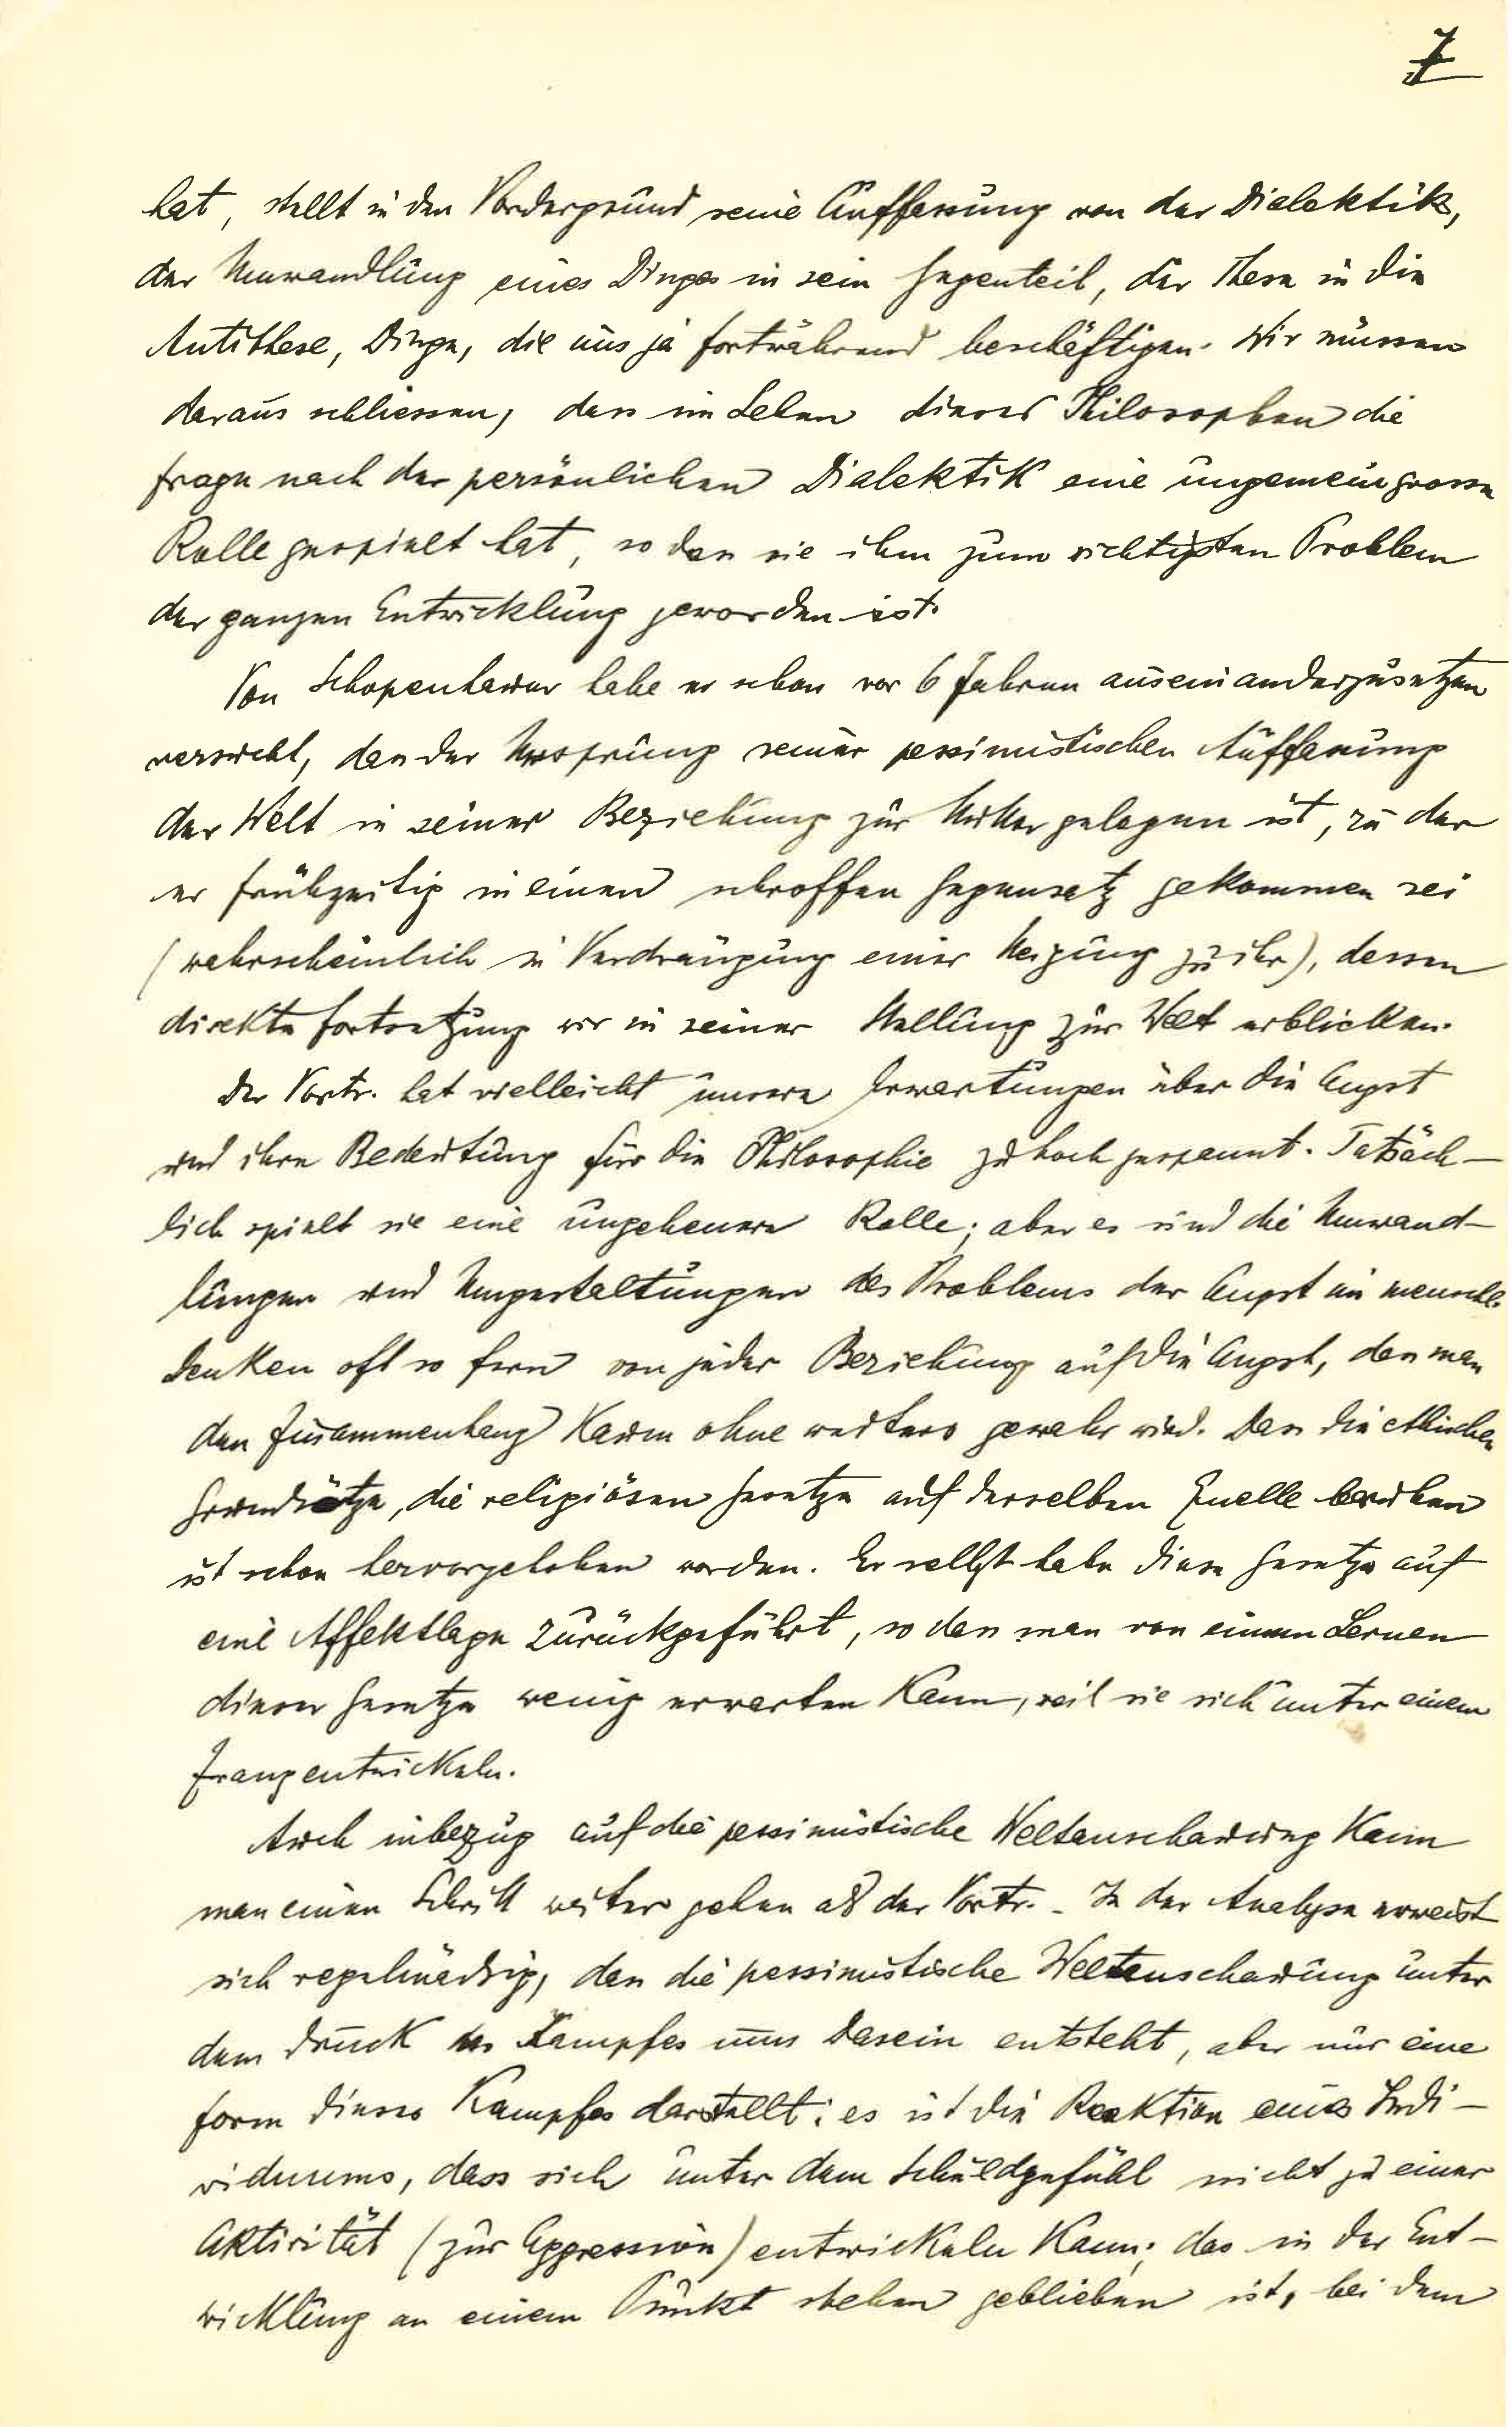 7
hat, stellt in den Vordergrund seine Auffassung von der Dialektik,
der Umwandlung eines Dinges in sein Gegenteil, der These in die
Antithese, Dinge, die uns ja fortwährend beschäftigen. Wir müssen
daraus schliessen, dass im Leben dieses Philosophen die
Frage nach der persönlichen Dialektik eine ungemein grosse
Rolle gespielt hat, so dass sie ihm zum wichtigsten Problem
der ganzen Entwicklung geworden ist.
Von Schopenhauer habe er schon vor 6 Jahren auseinanderzusetzen
versucht, dass der Ursprung seiner pessimistischen Auffassung
der Welt in seiner Beziehung zur Mutter gelegen ist, zu der
er frühzeitig in einen schroffen Gegensatz gekommen sei
(wahrscheinlich in Verdrängung einer Neigung zu ihr), dessen
direkte Fortsetzung wir in seiner Stellung zur Welt erblicken.
Der Vortr. hat vielleicht unsere Erwartungen über die Angst
und ihre Bedeutung für die Philosophie zu hoch gespannt. Tatsäch-
lich spielt sie eine ungeheuere Rolle; aber es sind die Umwand-
lungen und Umgestaltungen des Problems der Angst im menschl.
Denken oft so fern von jeder Beziehung auf die Angst, dass man
den Zusammenhang kaum ohne weiters gewahr wird. Dass die ethischen
Grundsätze, die religiösen Gesetze auf derselben Quelle beruhen
ist schon hervorgehoben worden. Er selbst habe diese Gesetze auf
eine Affektlage zurückgeführt, so dass man von einem Lernen
dieser Gesetze wenig erwarten kann, weil sie sich unter einem
Zwang entwickeln.
Auch inbezug auf die pessimistische Weltanschauung kann
man einen Schritt weiter gehen als der Vortr. - In der Analyse erweist
sich regelmässig, dass die pessimistische Weltanschauung unter
dem Druck des Kampfes ums Dasein entsteht, aber nur eine
Form dieses Kampfes darstellt: es ist die Reaktion eines Indi-
viduums, dass sich unter dem Schuldgefühl nicht zu einer
Aktivität (zur Aggression) entwickeln kann; das in der Ent-
wicklung an einem Punkt stehen geblieben ist, bei dem